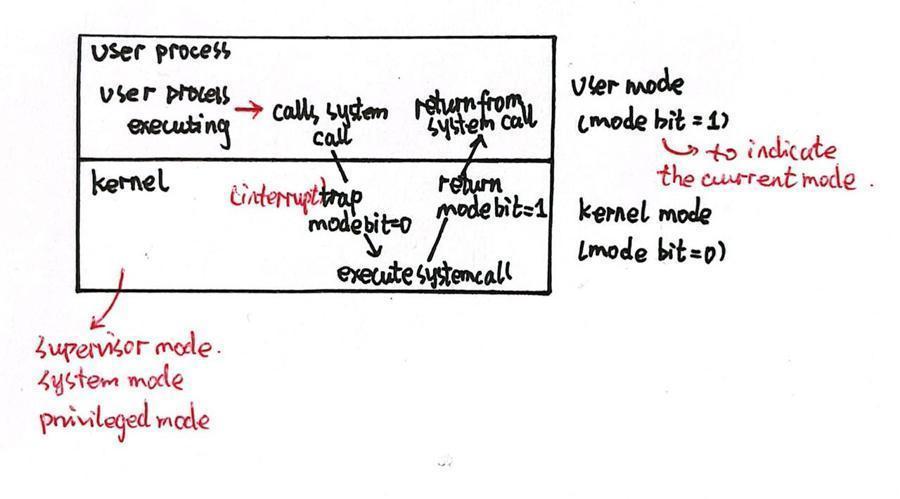 User process
User process
executing
calls system
call
return from
system call
User mode
(mode bit = 1)
to indicate
the current mode.
kernel
(interrupt) trap
mode bit=0
return
mode bit=1
execute system call
kernel mode
(mode bit=0)
supervisor mode.
system mode
privileged mode